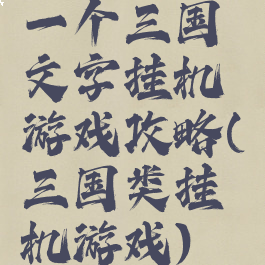 一个三国
文字挂机
游戏攻略(
三国类挂
机游戏)